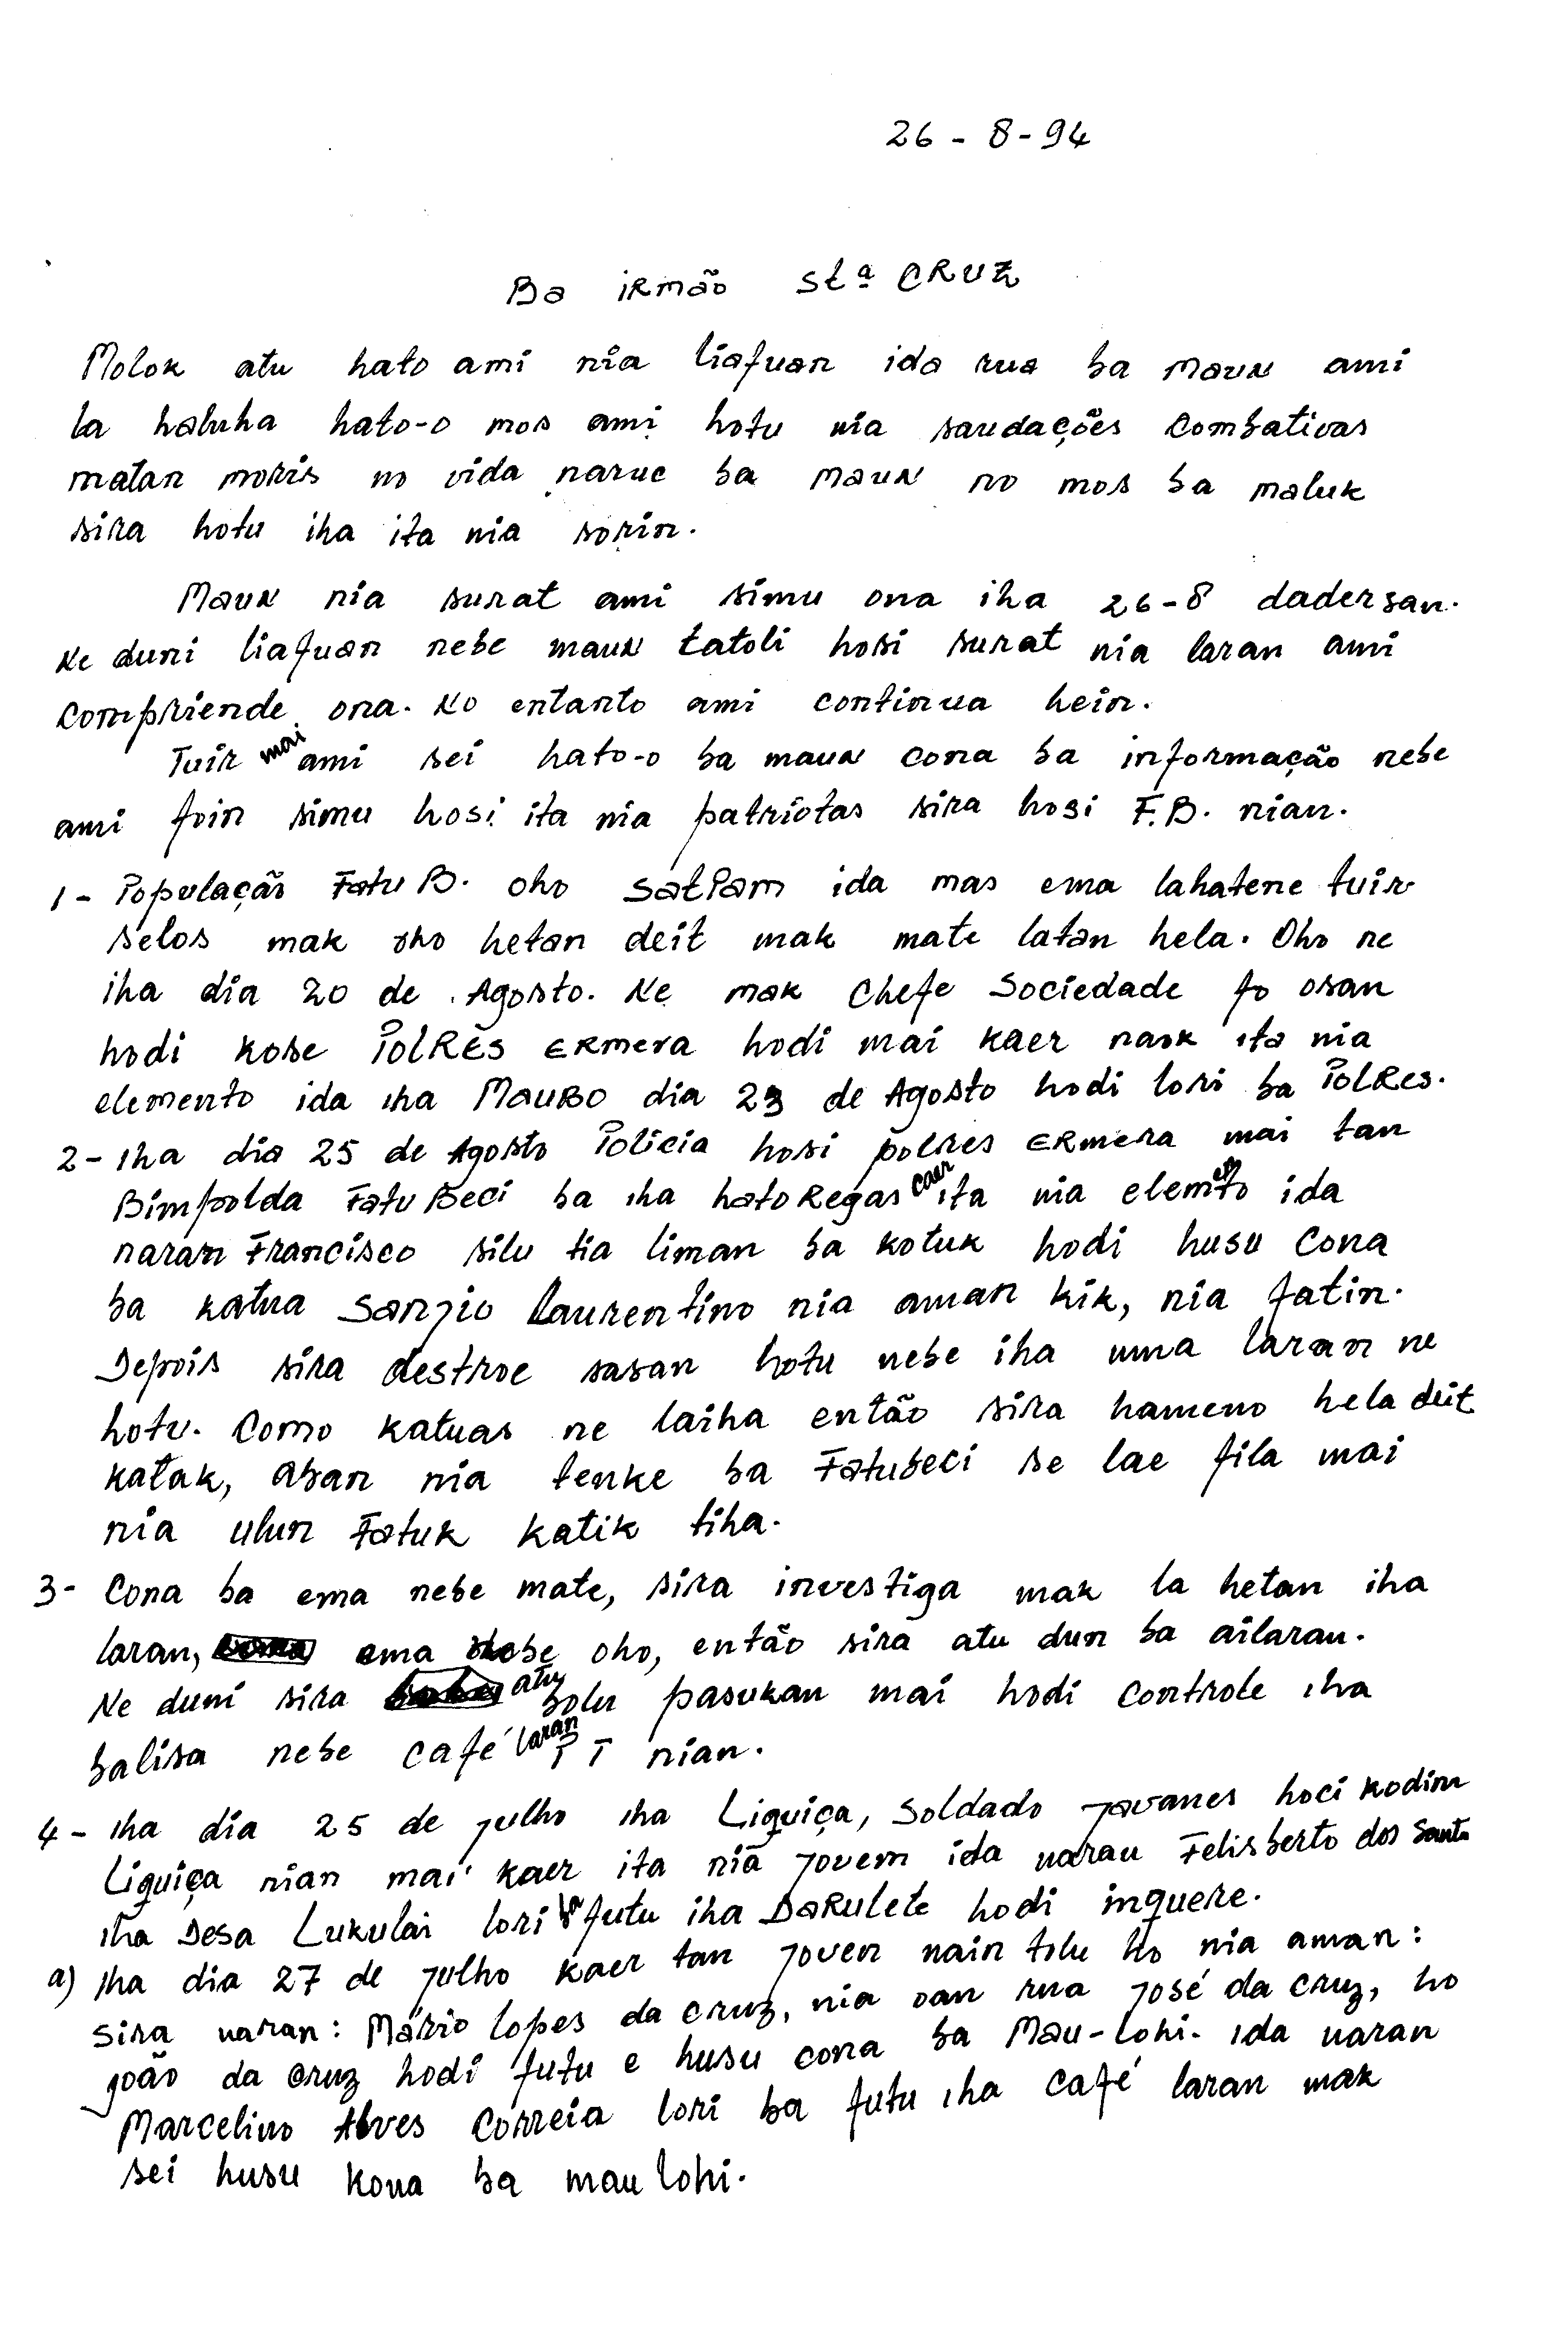 26 - 8 - 94
Ba irmão Stª CRUZ
Molok atu hato ami nia liafuan ida rua ba maun ami
la haluha hato-o mos ami hotu nia saudações combativas
matan moris no vida naruc ba maun no mos ba maluk
sira hotu iha ita nia sorin.
Maun nia surat ami simu ona iha 26-8 dadersan.
Ne duni liafuan nebe maun tatoli hosi surat nia laran ami
compriende ona. No entanto ami continua hein.
Tuir mai ami sei hato-o ba maun cona ba informação nebe
ami foin simu hosi ita nia patriotas sira hosi F.B. nian.
1- População Fatu B. oho satPam ida mas ema lahatene tuir
selos mak oho hetan deit mak mate latan hela. Oho ne
iha dia 20 de Agosto. Ne mak Chefe Sociedade fo osan
hodi kose PolRes ERmera hodi mai kaer naok ita nia
elemento ida iha MauBo dia 23 de Agosto hodi lori ba PolRes.
2- iha dia 25 de Agosto Policia hosi polres ERmera mai tan
Bimpolda Fatu Beci ba iha hatoRegas caer ita nia elemento ida
naran Francisco silu tia liman ba kotuk hodi husu cona
ba katua Sanjio Laurentino nia aman kik, nia fatin.
Depois sira destroe sasan hotu nebe iha uma laran ne
hotu. Como katuas ne laiha então sira hameno hela deit
katak, aban nia tenke ba Fatubeci se lae fila mai
nia ulun Fatuk katik tiha.
3- Cona ba ema nebe mate, sira investiga mak la hetan iha
laran, ema nebe oho, então sira atu dun ba ailaran.
Ne duni sira atu bolu pasukan mai hodi controle iha
balisa nebe café laran PT nian.
4- iha dia 25 de julho iha Liquiça, Soldado javanes hoci kodim
Liquiça nian mai kaer ita nia jovem ida naran Felisberto dos Santo
iha Desa Lukulai lori ba futu iha DaRulete hodi inquere.
a) iha dia 27 de julho kaer tan joven nain tolu ho nia aman:
sira naran: Mário lopes da cruz, nia oan rua josé da cruz, ho
joão da cruz hodi futu e husu cona ba Mau-Lohi. ida naran
Marcelino Alves Correia lori ba futu iha café laran mak
sei husu kona ba mau lohi.